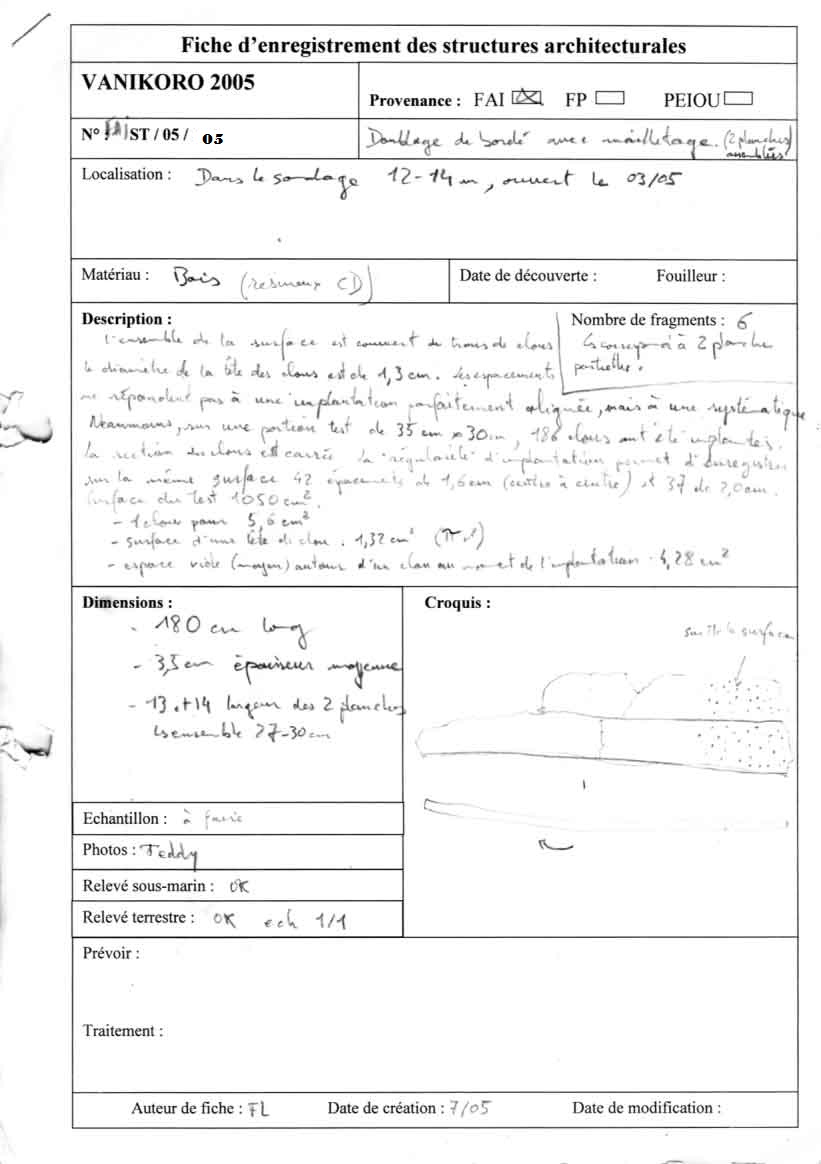 Fiche d'enregistrement des structures architecturales
VANIKORO 2005
Provenance : FAI FP PEIOU
N° : FAI ST / 05 / 05
Doublage de bordé avec mailletage. (2 planches assemblées)
Localisation : Dans le sondage 12-14 m, ouvert le 03/05
Matériau : Bois (résineux CD)
Date de découverte : Fouilleur :
Description :
Nombre de fragments : 6
correspond à 2 planches
partielles.
L'ensemble de la surface est couvert de trous de clous
le diamètre de la tête des clous est de 1,3 cm. Les espacements
ne répondent pas à une implantation parfaitement alignée, mais à une systématique
Néanmoins, sur une portion test de 35 cm x 30 cm, 186 clous ont été implantés.
La section des clous est carrée. La "régularité" d'implantation permet d'enregistrer
sur la même surface 42 épacements de 1,6 cm (centre à centre) et 37 de 2,0 cm.
Surface du test 1050 cm².
- 1 clous pour 5,6 cm²
- surface d'une tête de clou : 1,32 cm² (π r²)
- espace vide (moyen) autour d'un clou au moment de l'implantation : 4,28 cm²
Dimensions :
- 180 cm long
- 3,5 cm épaisseur moyenne
- 13 et 14 largeur des 2 planches
ensemble 27-30 cm
Croquis :
sur tte la surface
Echantillon : à faire
Photos : Teddy
Relevé sous-marin : OK
Relevé terrestre : OK ech 1/1
Prévoir :
Traitement :
Auteur de fiche : FL Date de création : 7/05 Date de modification :